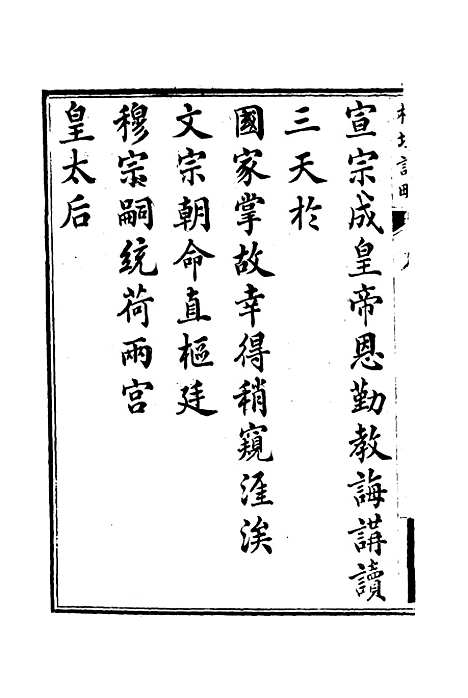 宣宗成皇帝恩勤教誨講讀
三天於
國家掌故幸得稍窺涯涘
文宗朝命直樞廷
穆宗嗣統荷兩宮
皇太后